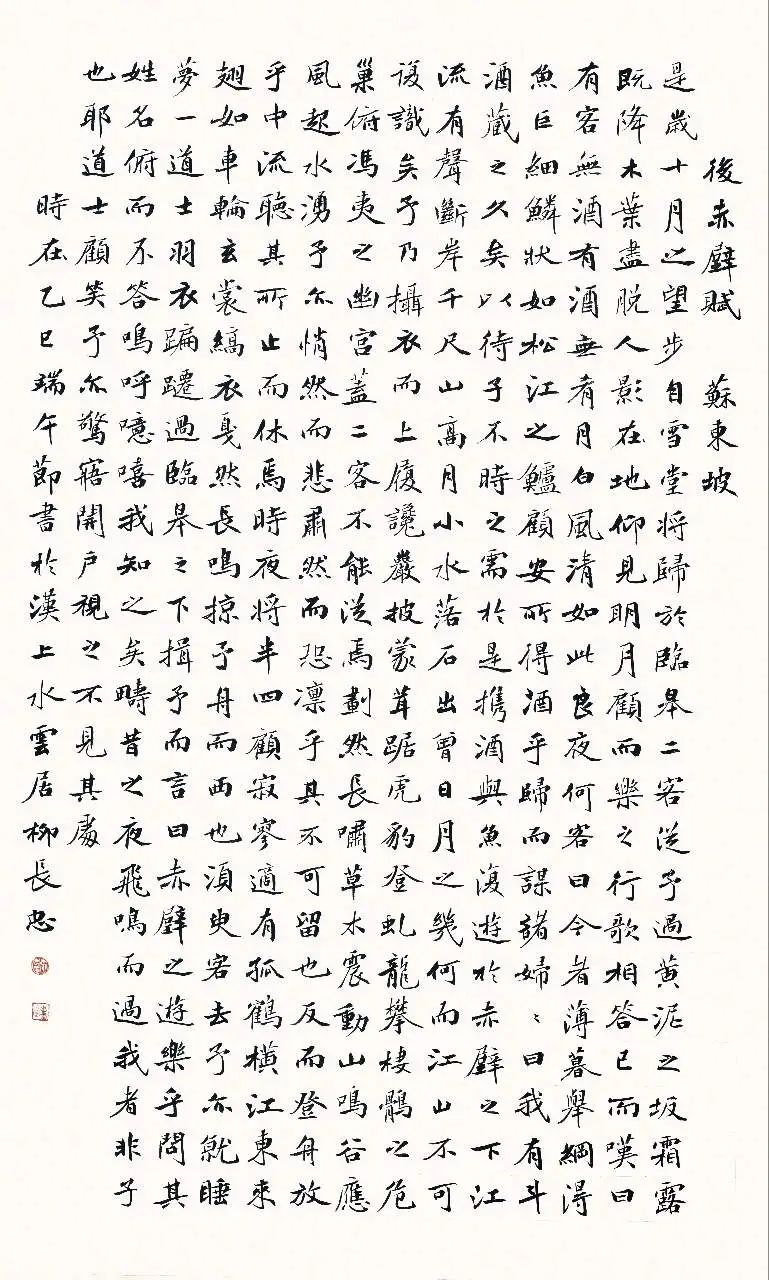 後赤壁賦 蘇東坡
是歲十月之望步自雪堂將歸於臨皋二客從予過黃泥之坂霜露
既降木葉盡脫人影在地仰見明月顧而樂之行歌相答已而嘆曰
有客無酒有酒無肴月白風清如此良夜何客曰今者薄暮舉網得
魚巨細鱗狀如松江之鱸顧安所得酒乎歸而謀諸婦〻曰我有斗
酒藏之久矣以待子不時之需於是攜酒與魚復遊於赤壁之下江
流有聲斷岸千尺山高月小水落石出曾日月之幾何而江山不可
復識矣予乃攝衣而上履巉巖披蒙茸踞虎豹登虬龍攀棲鶻之危
巢俯馮夷之幽宮蓋二客不能從焉劃然長嘯草木震動山鳴谷應
風起水湧予亦悄然而悲肅然而恐凜乎其不可留也反而登舟放
乎中流聽其所止而休焉時夜將半四顧寂寥適有孤鶴橫江東來
翅如車輪玄裳縞衣戛然長鳴掠予舟而西也須臾客去予亦就睡
夢一道士羽衣蹁躚過臨皋之下揖予而言曰赤壁之遊樂乎問其
姓名俯而不答嗚呼噫嘻我知之矣疇昔之夜飛鳴而過我者非子
也耶道士顧笑予亦驚寤開戶視之不見其處
時在乙巳端午節書於漢上水雲居柳長忠